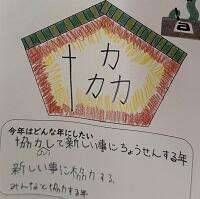 協
今年はどんな年にしたい
協力して新しい事にちょうせんする年
新しい事に協力する
みんなと協力する年